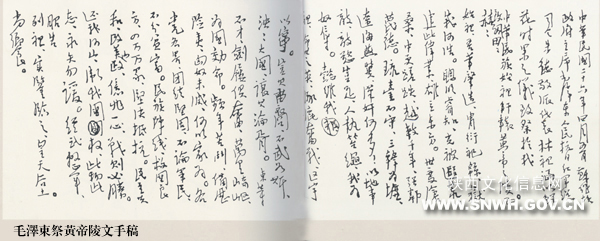 中華民國二十六年四月五日蘇維埃
政府主席毛澤東人民抗日紅軍總
司令朱德敬派代表林祖涵以鮮
花時果之儀致祭於我
中華民族始祖軒轅黃帝之陵
而致詞曰
赫赫始祖吾華肇造胄衍祀綿
岳峨河浩聰明睿知光被遐荒
建此偉業雄立東方世變滄
桑中更蹉跌越數千年強鄰
蔑德琉臺不守三韓為墟
遼海燕冀漢奸何多以地事
敵敵欲豈足人執笞繩我為
奴辱懿維我祖
命世之英涿鹿奮戰區宇
以寧豈其苗裔不武如斯
泱泱大國讓其淪胥東等
不才劍屨俱奮萬里崎嶇
為國效命頻年苦鬥備歷
險夷匈奴未滅何以家為各
黨各界團結堅固不論軍民
不分貧富民族陣線救國良
方四萬萬眾堅決抵抗民主共
和改革內政億兆一心戰則必勝
還我河山衛我國權此物此
志永矢勿諼經武整軍
昭告
列祖實鑒臨之皇天后土
尚饗
陕西文化信息网
WWW.SNWH.GOV.CN
毛澤東祭黃帝陵文手稿